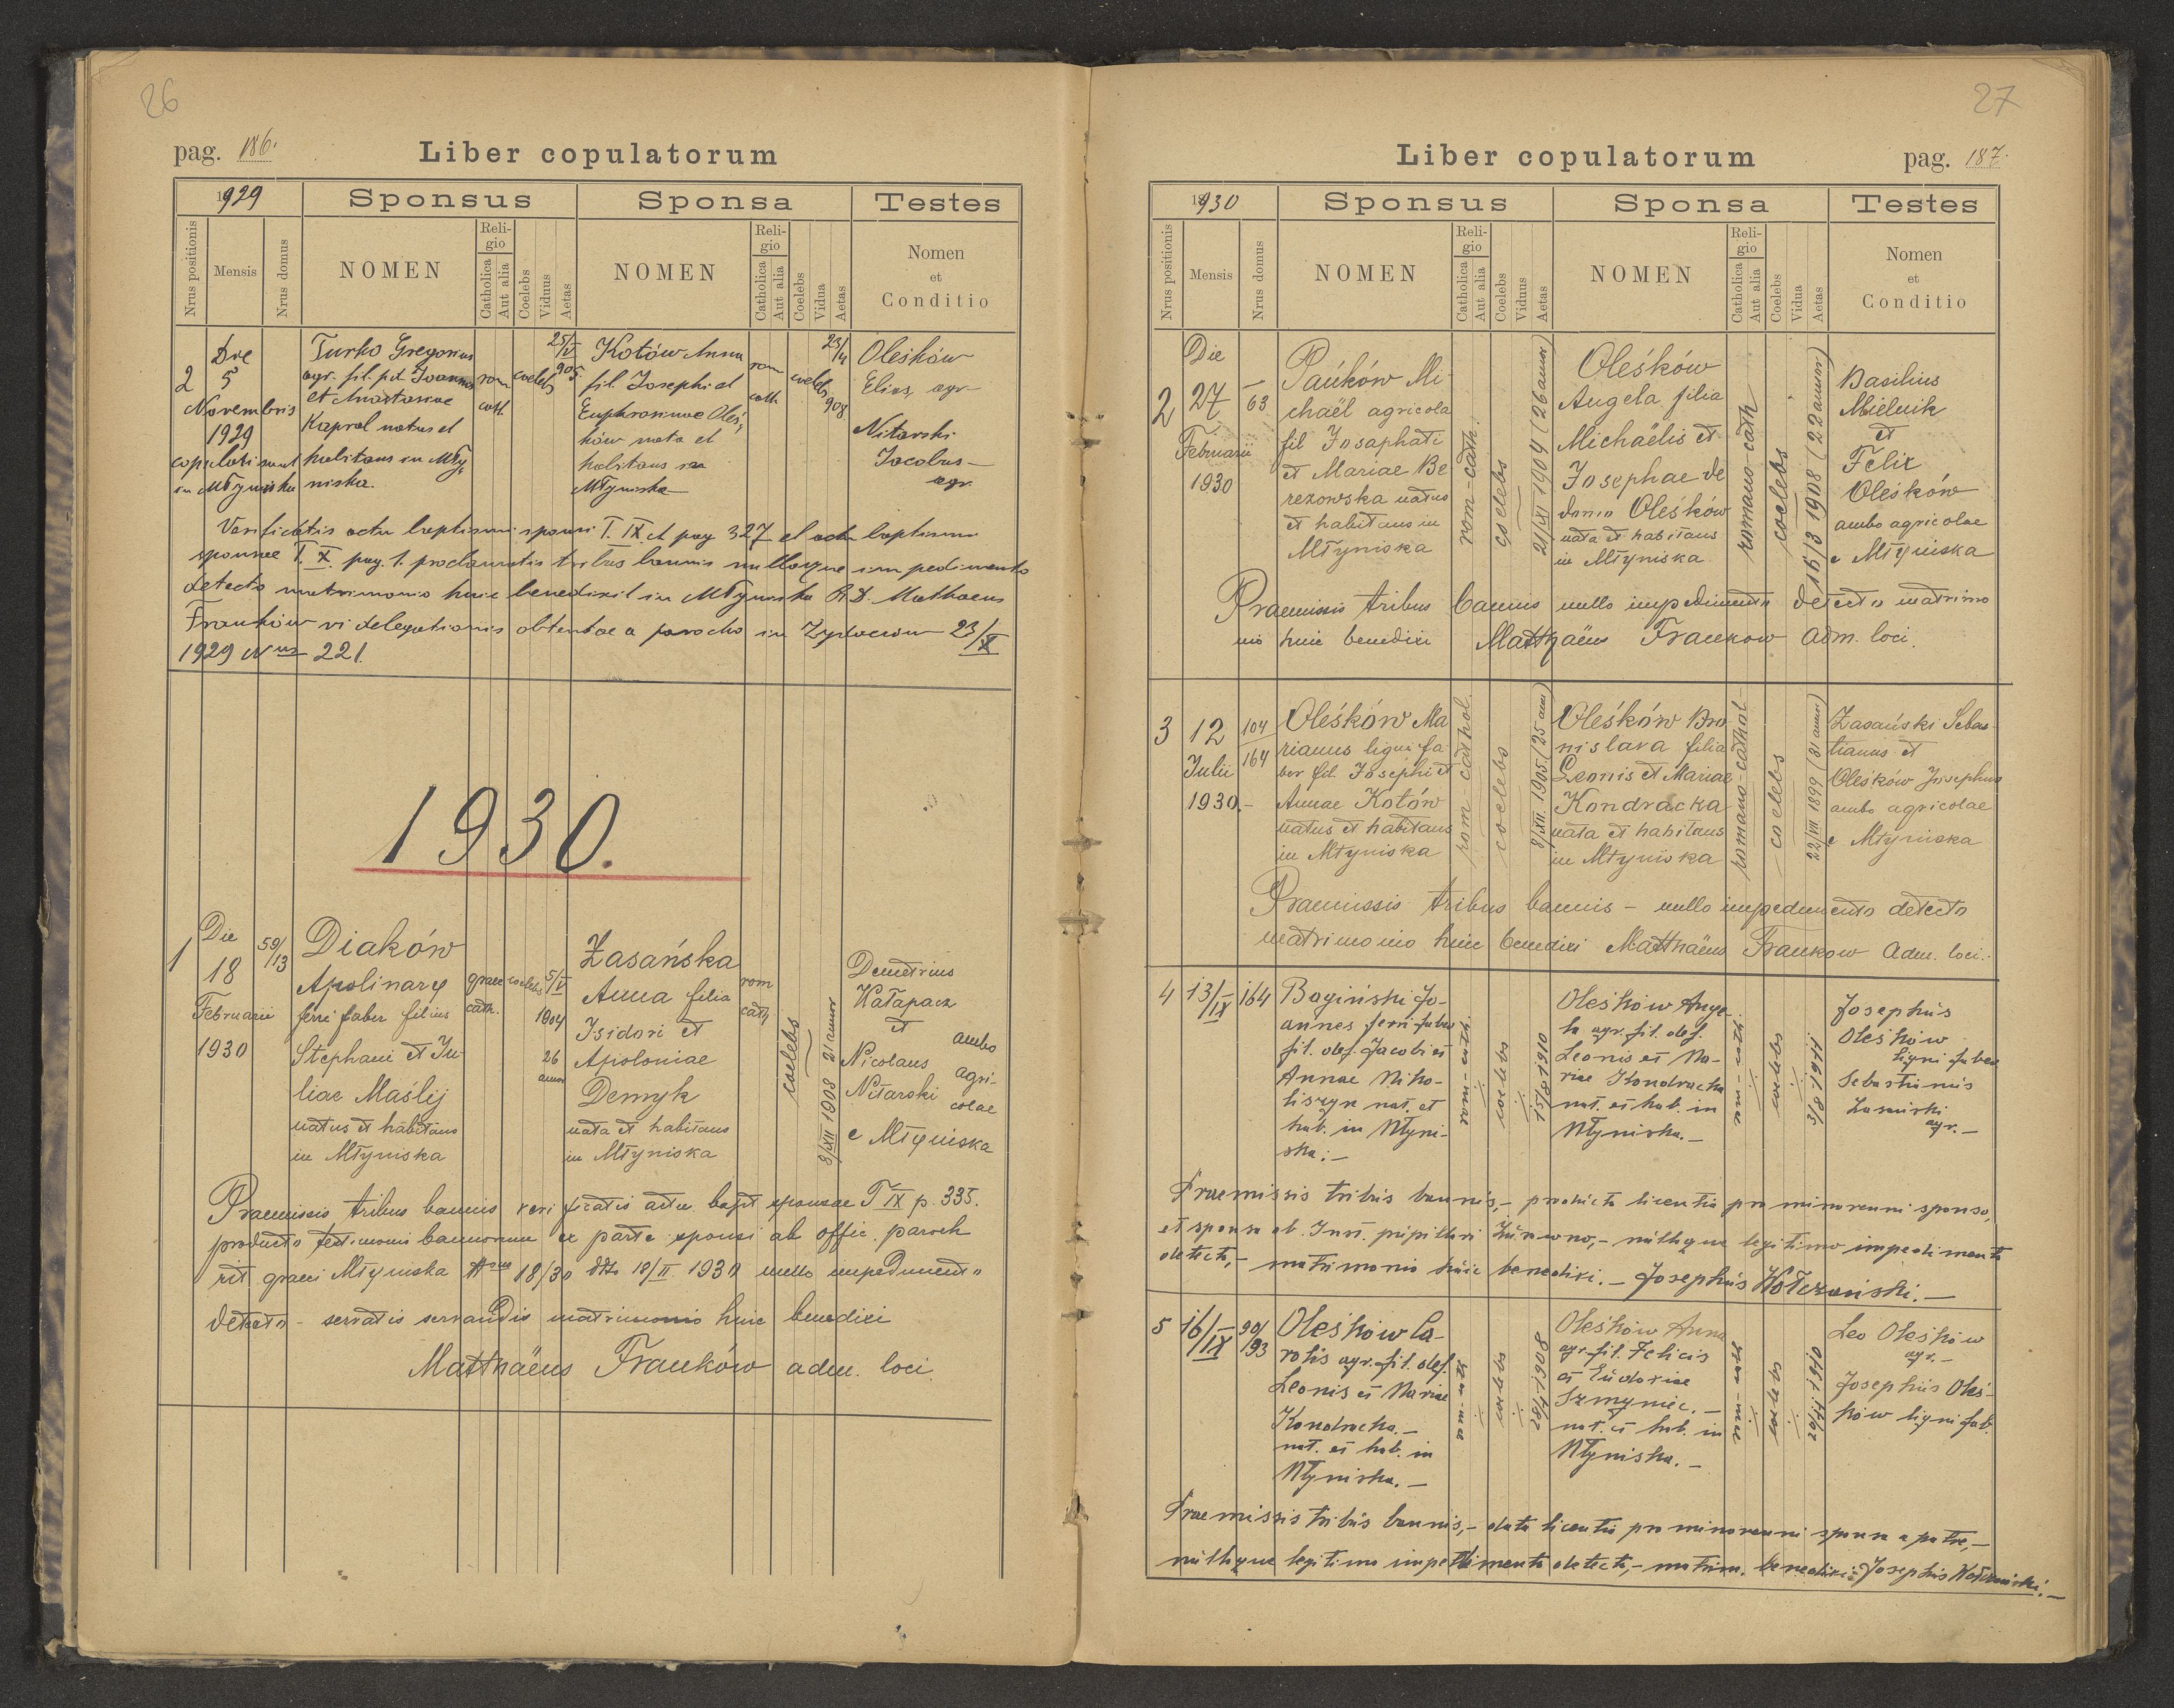 26
pag. 186.
Liber copulatorum
1929
Sponsus
Sponsa
Testes
Nrus positionis
Mensis
Nrus domus
NOMEN
Religio
Catholica
Aut alia
Coelebs
Viduus
Aetas
NOMEN
Religio
Catholica
Aut alia
Coelebs
Vidua
Aetas
Nomen
et
Conditio
2
Die
5
Novembris
1929
copulati sunt
in Młyniska
Turko Gregorius
agr. fil. p.d. Joannis
et Anastasiae
Kapral natus et
habitans in Mły
niska.
rom
cath
coelebs
25/V
905
Kotów Anna
fil Josephi et
Euphrosinae Oleś
ków nata et
habitans in
Młyniska
rom
cath
coelebs
23/4
908
Oleśków
Elias, agr
Nitarski
Jacobus
agr.
Verificatis actu baptismi sponsi T. IX. et pag 327 et actu baptismi
sponsae T. X. pag. 1. proclamatis tribus bannis nulloque impedimento
detecto matrimonio huic benedixit in Młyniska R. D. Mathaeus
Franków vi delegationis obtentae a parocho in 23/X
1929 Nrus 221.
1930.
1
Die
18
Februarii
1930
59/13
Diaków
Apolinary
ferri faber filius
Stephani et Ju
liae Maślij
natus et habitans
in Młyniska
graec
cath.
coelebs
5/V
1904
26
annor
Zasańska
Anna filia
Isidori et
Apoloniae
Demyk
nata et habitans
in Młyniska
rom
cath
coelebs
8/XII 1908 21 annor
Demetrius
Kałapacz
et
Nicolaus
Nitarski
ambo
agri-
colae
e Młyniska
Praemissis tribus bannis verificatis actu bapt sponsae T IX p. 335.
producto testimonio bannorum ex parte sponsi ab offic. paroch
rit graeci Młyniska 18/30 dtto 18/II 1930 nullo impedimento
detecto - servatis servandis matrimonio huic benedixi
Matthaëus Franków adm. loci.
27
Liber copulatorum
pag. 187.
1930
Sponsus
Sponsa
Testes
Nrus positionis
Mensis
Nrus domus
NOMEN
Religio
Catholica
Aut alia
Coelebs
Viduus
Aetas
NOMEN
Religio
Catholica
Aut alia
Coelebs
Vidua
Aetas
Nomen
et
Conditio
2
Die
27
Februarii
1930
63
Pańków Mi
chaël agricola
fil Josaphati
et Mariae Be
rezowska natus
et habitans in
Młyniska
rom-cath.
coelebs
21/XI 1904 (26 annor)
Oleśków
Angela filia
Michaëlis et
Josephae de
domo Oleśków
nata et habitans
in Młyniska
romano-cath
coelebs
15/3 1908 (22 annor)
Basilius
Mielnik
et
Felix
Oleśków
ambo agricolae
e Młyniska
Praemissis tribus bannis nullo impedimento detecto matrimo
nio huic benedixi Matthaëus Frankow Adm. loci.
3
12
Julii
1930.-
104
164
Oleśków Ma
rianus ligni fa
ber fil. Josephi et
Annae Kotów
natus et habitans
in Młyniska
rom-cathol.
coelebs
8/XII. 1905 (25 ann)
Oleśków Bro
nislava filia
Leonis et Mariae
Kondracka
nata et habitans
in Młyniska
romano-cathol-
coelebs
22/VII 1899 (31 annor)
Zasański Sebas-
tianus et
Oleśków Josephus
ambo agricolae
e Młyniska
Praemissis tribus bannis - nullo impedimento detecto
matrimonio huic benedixi Matthaëus Frankow Adm. loci.
4
13/IX
164
Bogiński Jo-
annes ferri faber
fil. def. Jacobi et
Annae Niko-
liszyn nat. et
hab. in Młyni-
ska.-
rom-cath.
coelebs
15/8 1910
Oleśków Ange
la agr. fil. def.
Leonis et Ma-
riae Kondracka
nat. et hab. in
Młyniska.-
coelebs
3/8 1911
Josephus
Oleśków
ligni faber
Sebastianus
Zasański
agr.-
Praemissis tribus bannis,- producta licentia pro minorenni sponso,
et sponsa ab Inst. pupillari Żurawno,- nulloque legitimo impedimento
detecto,- matrimonio huic benedixi.- Josephus
5
16/IX
90/93
Oleśków Ca-
rolus agr. fil. def.
Leonis et Mariae
Kondracka.-
nat. et hab. in
Młyniska.-
coelebs
28/1 1908
Oleśków Anna
agr. fil. Felicis
et Eudoxiae
Szmyniec.-
nat. et hab. in
Młyniska.-
coelebs
29/11 1910
Leo Oleśków
agr.-
Josephus Oleś-
ków ligni fab.
Praemissis tribus bannis,- data licentia pro minorenni sponsa a patre,-
nulloque legitimo impedimento detecto,- matrim. benedixi. Josephus